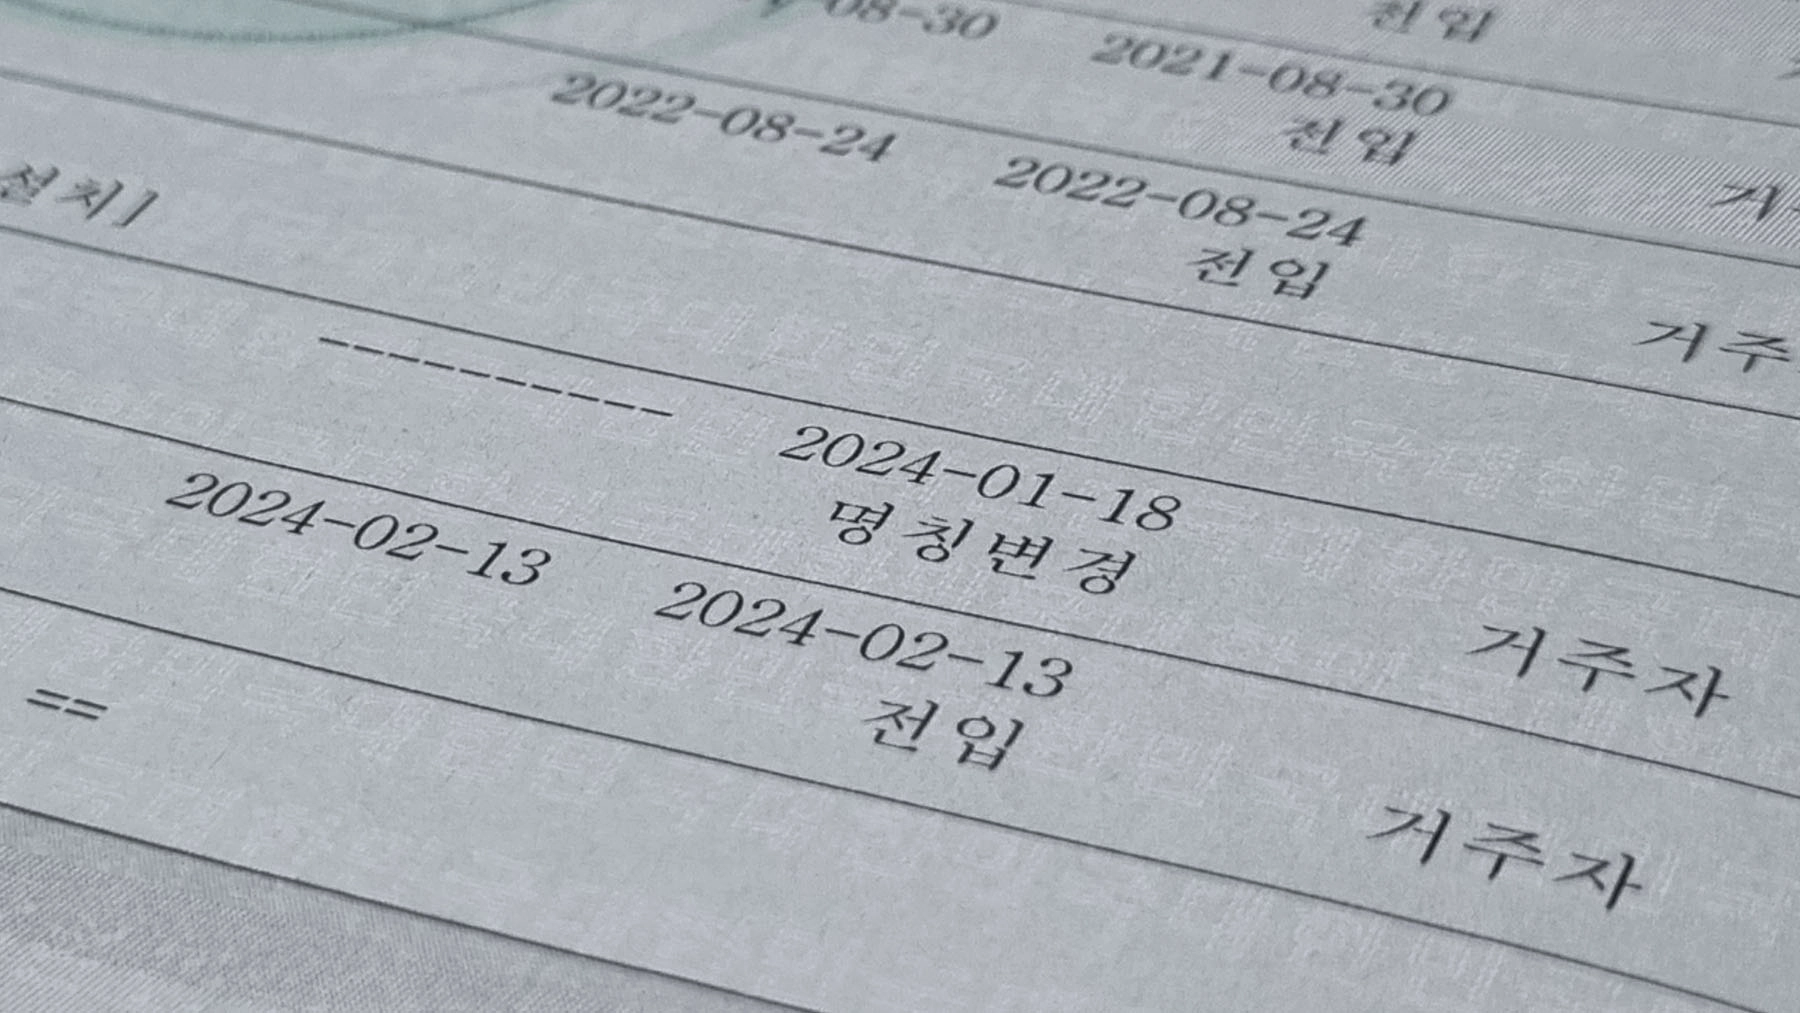 전입
08-30 2021-08-30
전입
2022-08-24 2022-08-24
전입 거주
설치]
---------- 2024-01-18
명칭변경 거주자
2024-02-13 2024-02-13
전입 거주자
==